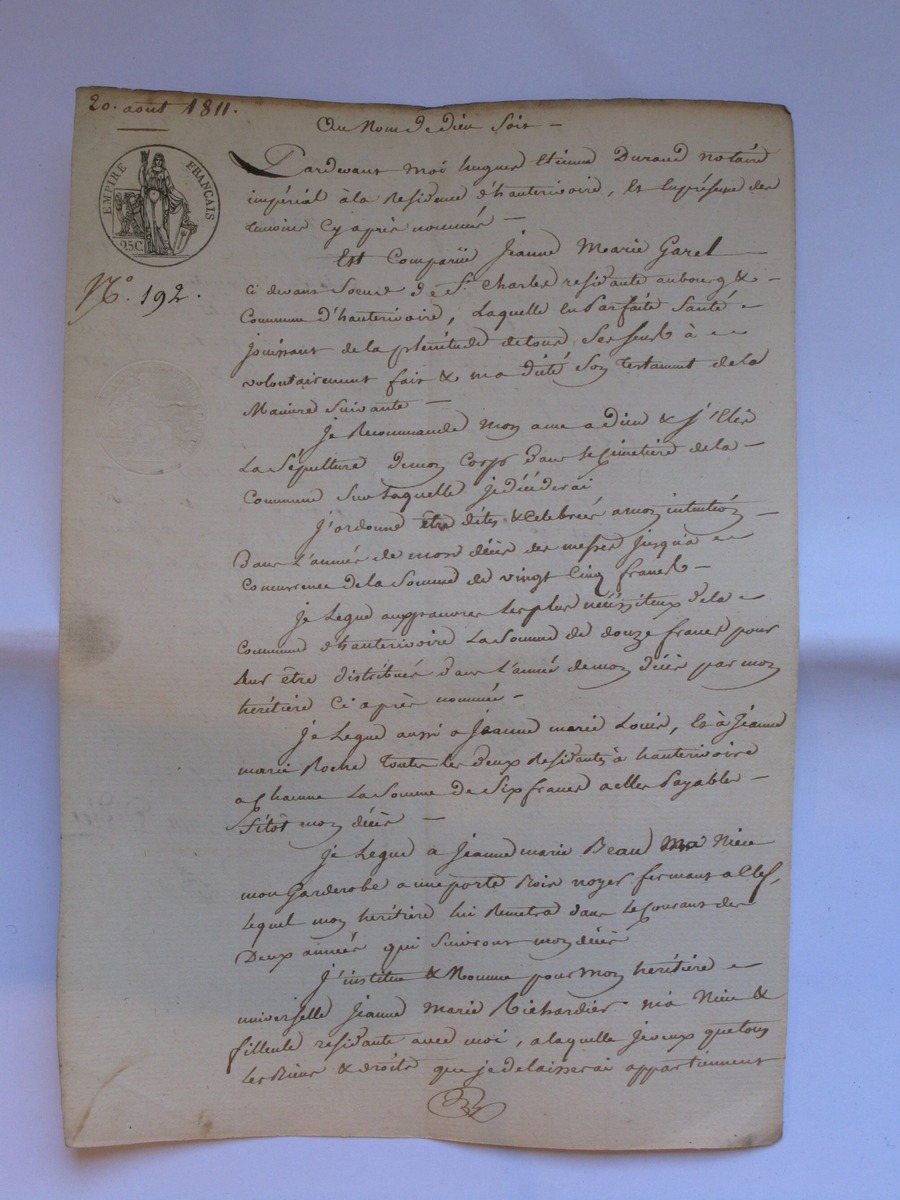 20. aout 1811.
Au Nom de dieu soit
EMPIRE FRANÇAIS
25C
Nº. 192.
Pardevant moi hugues Etienne Durand notaire
impérial à la Residence d'hauterivoire, Et En présence des
temoins Cy après nommés
Est Comparüe Jeanne Marie Garel
ci devant Soeur de St. Charles residante au bourg &
Commune d'hauterivoire, Laquelle En Parfaite Santé
jouissant de la plénitude de tous Ses sens à
volontairement fait & ma dicté Son testament de la
Maniere Suivante
Je Recommande Mon ame a Dieu & j'Elis
La Sépulture de mon Corps Dans le Cimetière de la
Commune Sur laquelle je décéderai
J'ordonne être dites & Celebrées a mon intention
Dans L'année de mon décès des messes jusqu'a
Concurrence de la Somme de vingt Cinq francs
Je Legue aux pauvres Les plus nécéssiteux de la
Commune d'hauterivoire La Somme de douze francs pour
leur être distribués dans L'année de mon décès par mon
heritière Ci après nommée
Je Legue aussi a Jeanne marie Louis, Et à Jeanne
marie Roche Toutes les deux Residantes à hauterivoire
a Chacune La Somme de Six francs a elles Payables
Sitot mon décès
Je Legue a Jeanne marie Beau Ma Niece
mon Garderobe a une porte Bois noyer fermant a Clef,
Lequel mon heritière lui Remetra dans le Courant des
Deux années qui Suivront mon décès
J'institue & Nomme pour Mon heritière
universelle Jeanne Marie Richardier ma Niece &
filleule residante avec moi, a laquelle je veux que tous
les Biens & droits que je delaisserai appartiennent